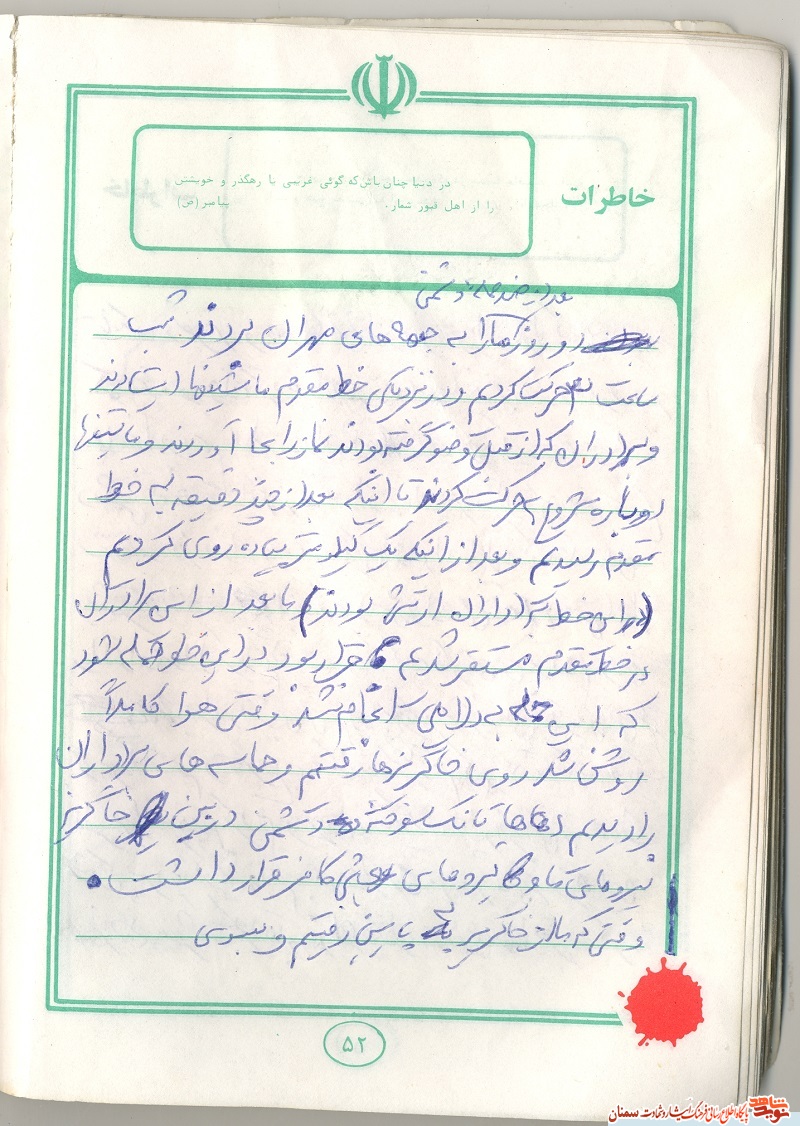 خاطرات
در دنیا چنان باش که گوئی غریبی یا رهگذر و خویشتن
را از اهل قبور شمار. پیامبر (ص)
بعد از ضد حمله دشمن
دو روز ما را به جبهه های مهران بردند شب
ساعت حرکت کردیم و در نزدیکی خط مقدم ماشینها ایستادند
و برادران که از قبل وضو گرفته بودند نماز را بجا آوردند و ماشینها
دوباره شروع حرکت کردند تا اینکه بعد از چند دقیقه به خط
مقدم رسیدیم و بعد از اینکه یک کیلومتر پیاده روی کردیم
(در این خط برادران ارتش بودند) ما بعد از این برادران
در خط مقدم مستقر شدیم قرار بود در این خط حمله شود
که این حمله به دلایلی انجام نشد وقتی هوا کاملاً
روشن شد روی خاکریزها رفتیم و حماسه های برادران
را دیدیم تانک سوخته دشمن در بین خاکریز
نیروهای ما و نیروهای بعثی کافر قرار داشت.
وقتی که ما از خاکریز پایین رفتیم و بسوی
۵۲
نوید شاهد
پایگاه اطلاع رسانی فرهنگ ایثار و شهادت سمنان